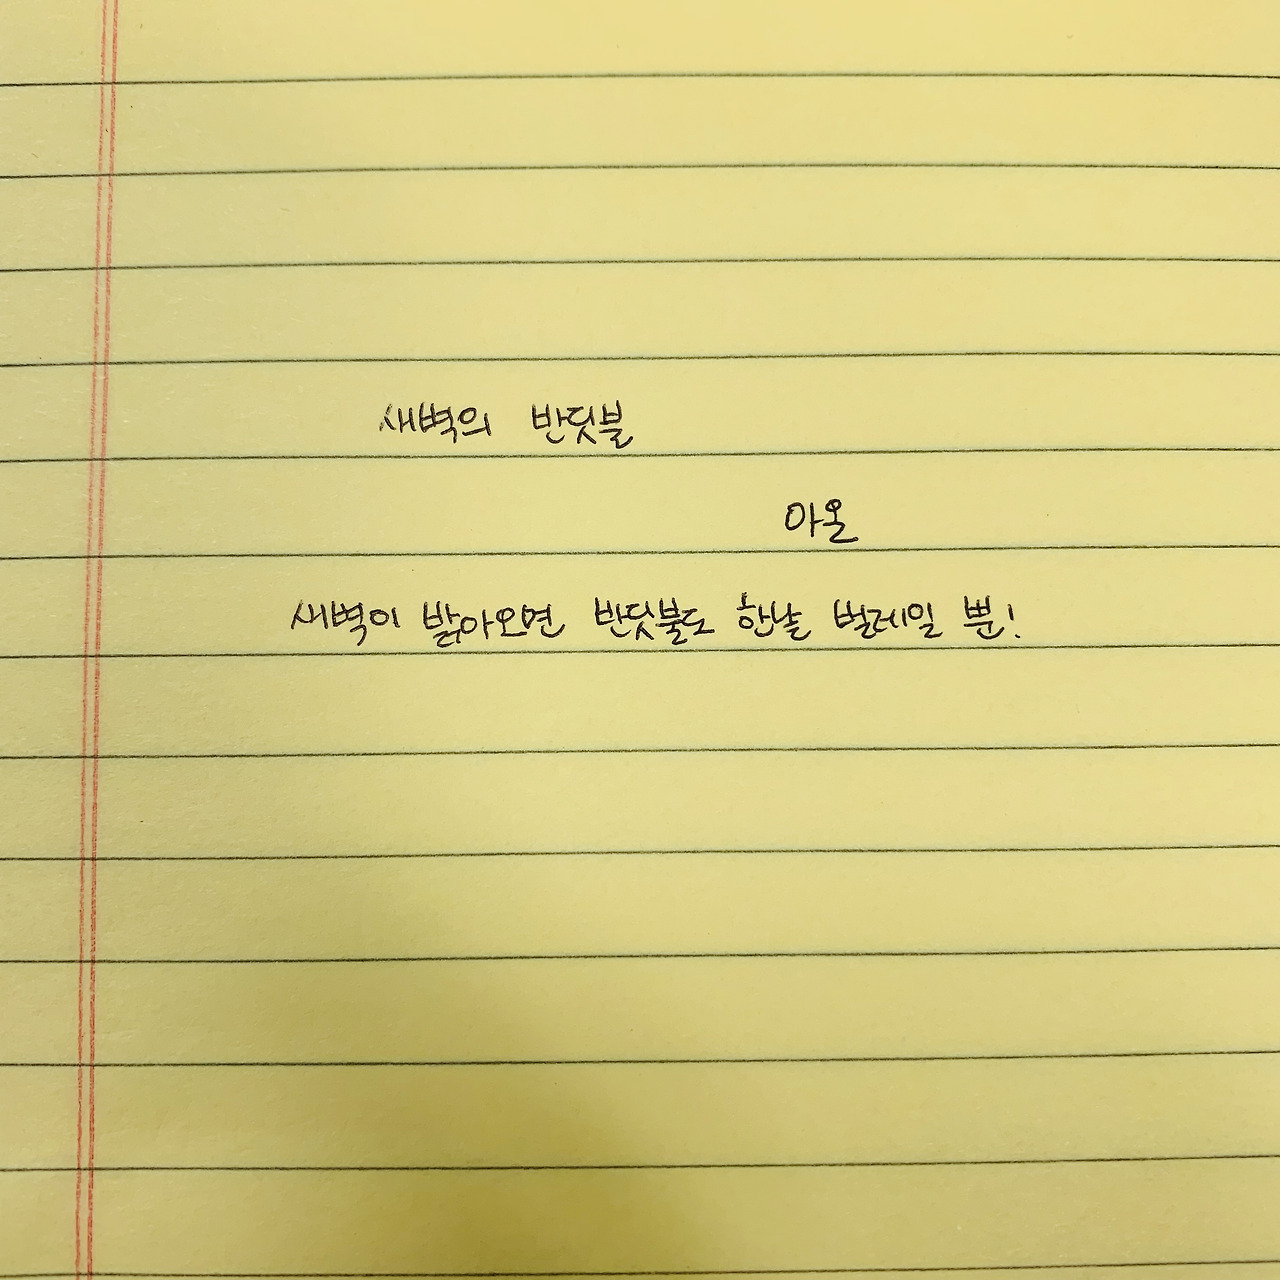 새벽의 반딧불
아온
새벽이 밝아오면 반딧불도 한낱 벌레일 뿐!